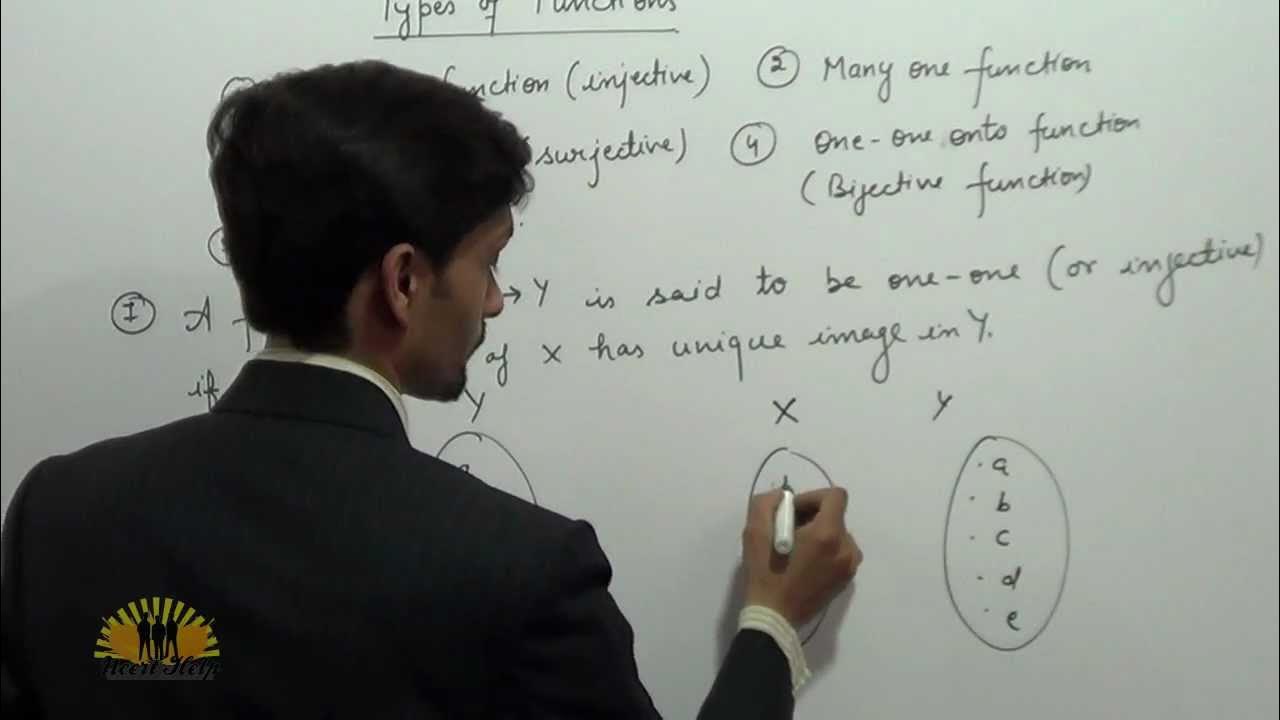 Types of Functions
nction (injective) 2 Many one function
surjective) 4 One-one onto function
(Bijective function)
I A → Y is said to be one-one (or injective)
if of X has unique image in Y.
Y X Y
a
b
c
d
e
Ncert Help